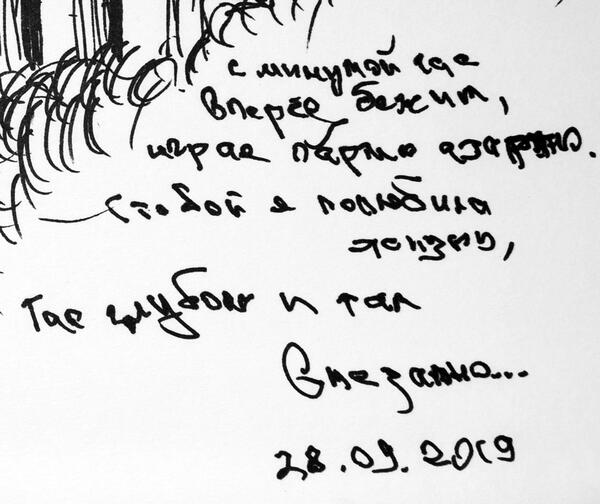 с минутой час
вперёд бежит,
играе партию азартно.
С тобой я полюбила
жизнь,
Так глубоко и так
Внезапно...
28.09.2019